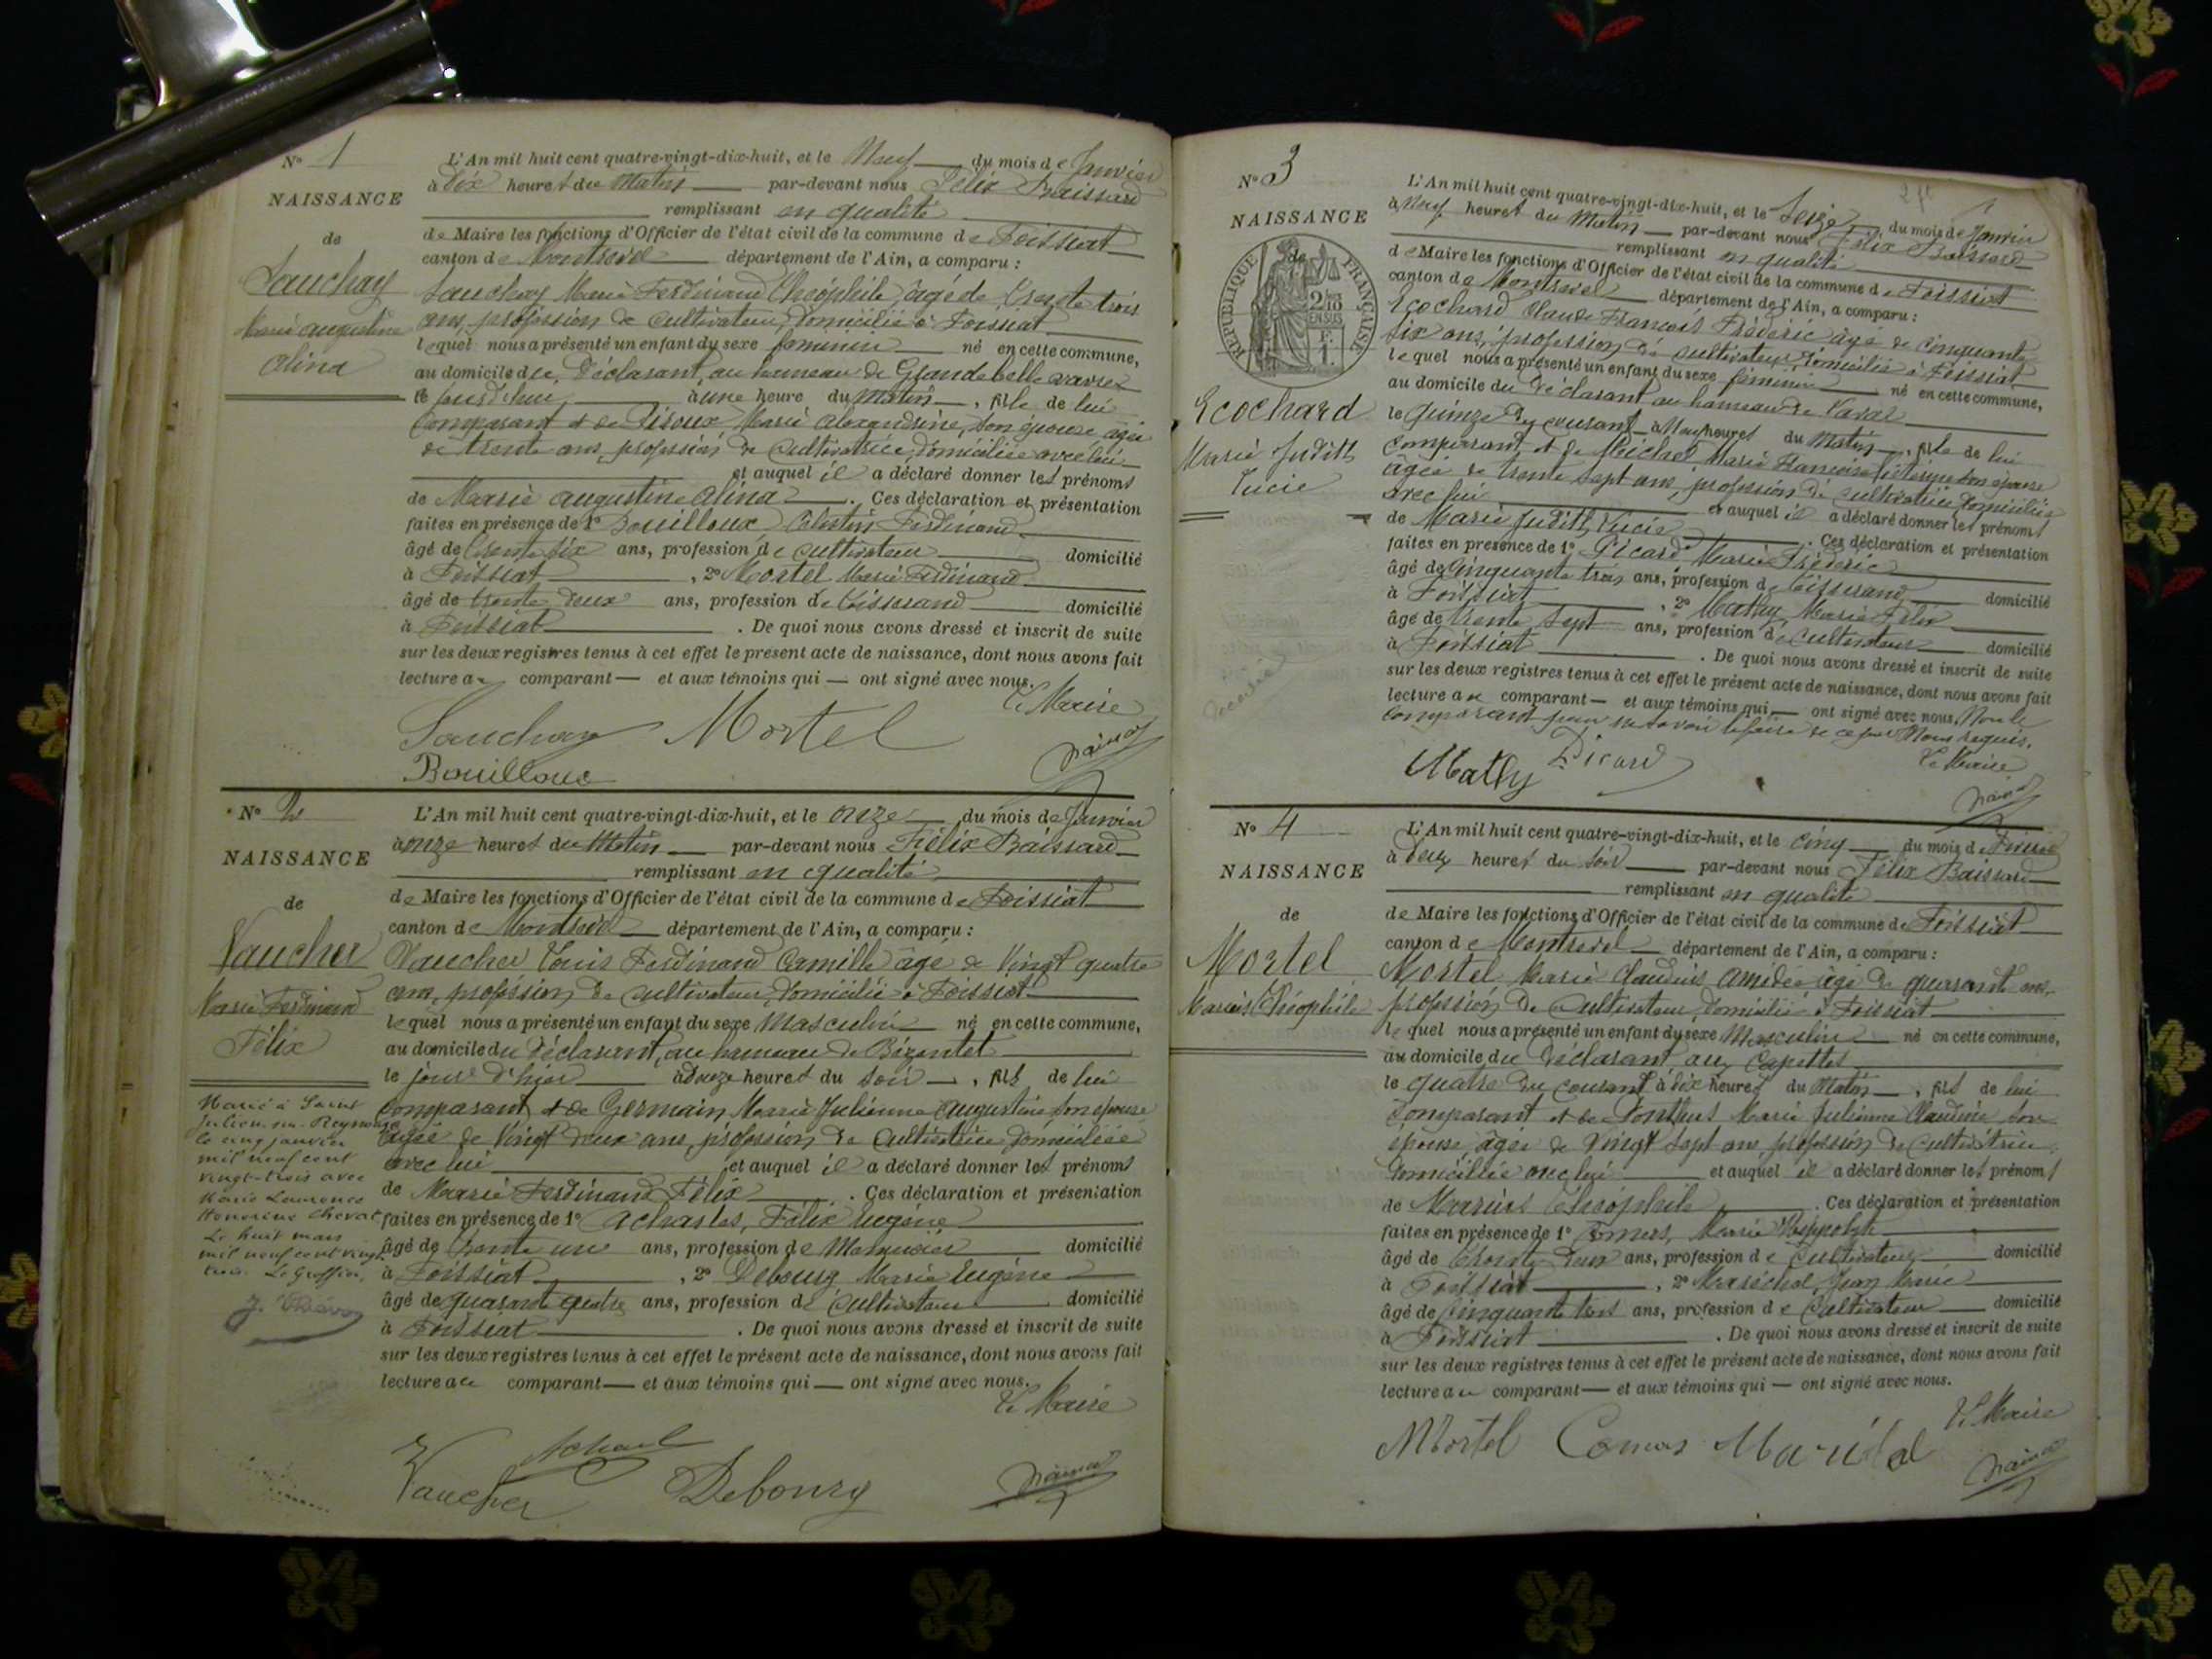 N° 1
NAISSANCE
de
Sauchay
Marie Augustine
Alina
L'An mil huit cent quatre-vingt-dix-huit, et le Neuf du mois de Janvier
à Dix heures du Matin par-devant nous Félix Baissard
remplissant en qualité
de Maire les fonctions d'Officier de l'état civil de la commune de Foissiat
canton de Montrevel département de l'Ain, a comparu :
Sauchay Marie Ferdinand Théophile, âgé de trente trois
ans, profession de cultivateur, domicilié à Foissiat
lequel nous a présenté un enfant du sexe féminin né en cette commune,
au domicile du Déclarant, au hameau de Grandebelle
à une heure du Matin, fille de lui
Comparant et de Marie Alexandrine, son épouse âgée
de trente ans, profession de Cultivatrice, domiciliée avec lui
et auquel il a déclaré donner les prénoms
de Marie Augustine Alina. Ces déclaration et présentation
faites en présence de 1° Bouilloux Célestin Ferdinand
âgé de trente six ans, profession de cultivateur domicilié
à Foissiat, 2° Mortel Marie Ferdinand
âgé de trente deux ans, profession de Tisserand domicilié
à Foissiat. De quoi nous avons dressé et inscrit de suite
sur les deux registres tenus à cet effet le présent acte de naissance, dont nous avons fait
lecture au comparant et aux témoins qui ont signé avec nous.
Le Maire
Sauchay Mortel
Bouilloux
N° 2
NAISSANCE
de
Vaucher
Marie Ferdinand
Félix
Marié à Saint
Julien-sur-Reyssouze
le cinq janvier
mil neuf cent
vingt-trois avec
Marie Laurence
Honorine Chevat
Le huit mars
mil neuf cent vingt
trois. Le Greffier,
L'An mil huit cent quatre-vingt-dix-huit, et le onze du mois de Janvier
à onze heures du Matin par-devant nous Félix Baissard
remplissant en qualité
de Maire les fonctions d'Officier de l'état civil de la commune de Foissiat
canton de Montrevel département de l'Ain, a comparu :
Vaucher Louis Ferdinand Camille âgé de Vingt quatre
ans, profession de cultivateur, domicilié à Foissiat
lequel nous a présenté un enfant du sexe Masculin né en cette commune,
au domicile du déclarant, au hameau de Bézentet
le jour d'hier à douze heures du soir, fils de lui
comparant et de Germain Marie Julienne Augustine son épouse
âgée de Vingt deux ans, profession de Cultivatrice domiciliée
avec lui et auquel il a déclaré donner les prénoms
de Marie Ferdinand Félix. Ces déclaration et présentation
faites en présence de 1° Acharles, Félix Eugène
âgé de trente un ans, profession de Menuisier domicilié
à Foissiat, 2° Debourg Marie Eugène
âgé de quarante quatre ans, profession de Cultivateur domicilié
à Foissiat. De quoi nous avons dressé et inscrit de suite
sur les deux registres tenus à cet effet le présent acte de naissance, dont nous avons fait
lecture au comparant et aux témoins qui ont signé avec nous.
Le Maire
Vaucher Debourg
N° 3
NAISSANCE
de
REPUBLIQUE FRANÇAISE
Ecochard
Marie Judith
Lucie
L'An mil huit cent quatre-vingt-dix-huit, et le Seize du mois de Janvier
à Neuf heures du Matin par-devant nous Félix Baissard
remplissant en qualité
de Maire les fonctions d'Officier de l'état civil de la commune de Foissiat
canton de Montrevel département de l'Ain, a comparu :
Ecochard Claude François Fréderic âgé de cinquante
six ans, profession de cultivateur, domicilié à Foissiat
lequel nous a présenté un enfant du sexe féminin né en cette commune,
au domicile du déclarant au hameau de
le quinze du courant à Neuf heures du Matin, fille de lui
comparant et de Michel Marie Françoise son épouse
âgée de trente sept ans, profession de cultivatrice domiciliée
avec lui et auquel il a déclaré donner les prénoms
de Marie Judith Lucie. Ces déclaration et présentation
faites en présence de 1° Picard Marie Fréderic
âgé de cinquante trois ans, profession de tisserand domicilié
à Foissiat, 2° Mathy Marie Félix
âgé de trente sept ans, profession de Cultivateur domicilié
à Foissiat. De quoi nous avons dressé et inscrit de suite
sur les deux registres tenus à cet effet le présent acte de naissance, dont nous avons fait
lecture au comparant et aux témoins qui ont signé avec nous, Non le
comparant pour ne savoir le faire de ce par Nous requis.
Le Maire
Mathy Picard
N° 4
NAISSANCE
de
Mortel
Marius Théophile
L'An mil huit cent quatre-vingt-dix-huit, et le cinq du mois de Février
à Deux heures du soir par-devant nous Félix Baissard
remplissant en qualité
de Maire les fonctions d'Officier de l'état civil de la commune de Foissiat
canton de Montrevel département de l'Ain, a comparu :
Mortel Marie Claudius Amédée âgé de quarante ans,
profession de Cultivateur domicilié à Foissiat
lequel nous a présenté un enfant du sexe Masculin né en cette commune,
au domicile du déclarant aux Capettes
le quatre du courant à dix heures du Matin, fils de lui
Comparant et de Ponthus Marie Julienne Claudine son
épouse, âgée de Vingt sept ans, profession de cultivatrice,
domiciliée avec lui et auquel il a déclaré donner les prénoms
de Marius Théophile. Ces déclaration et présentation
faites en présence de 1° Marie Hippolyte
âgé de trente deux ans, profession de Cultivateur domicilié
à Foissiat, 2° Maréchal Jean Marie
âgé de cinquante trois ans, profession de Cultivateur domicilié
à Foissiat. De quoi nous avons dressé et inscrit de suite
sur les deux registres tenus à cet effet le présent acte de naissance, dont nous avons fait
lecture au comparant et aux témoins qui ont signé avec nous.
Le Maire
Mortel